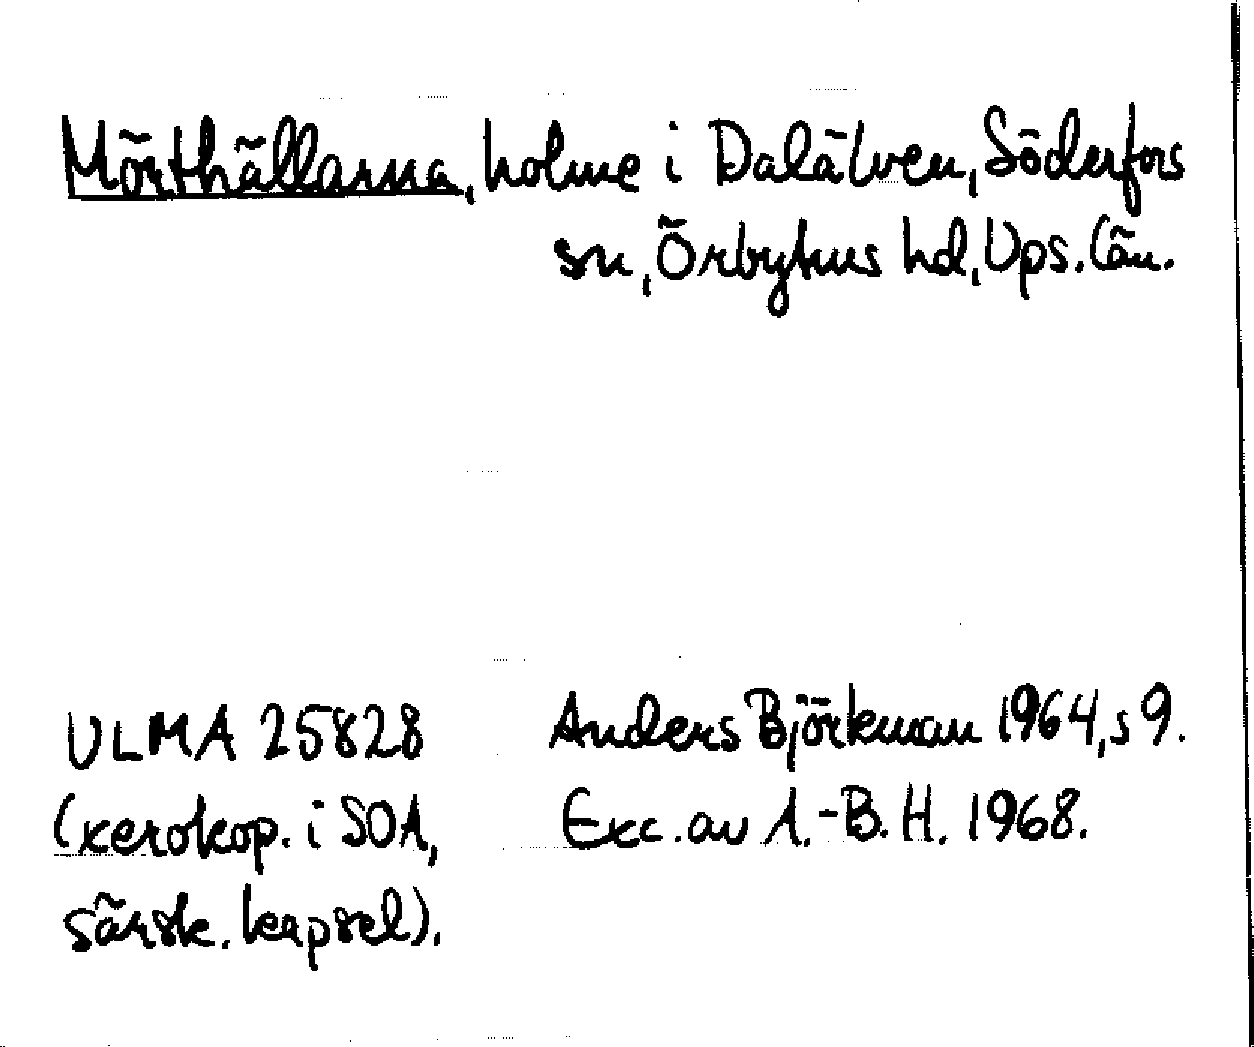 Mörthällarna, holme i Dalälven, Söderfors
sn, Örbyhus hd, Ups. län.
ULMA 25828
(xerokop. i SOA,
särsk. kapsel).
Anders Björkman 1964, s 9.
Exc. av A.-B. H. 1968.